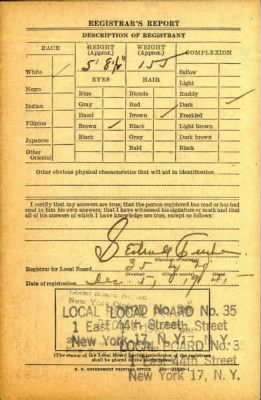 REGISTRAR'S REPORT
DESCRIPTION OF REGISTRANT
RACE HEIGHT (Approx.) WEIGHT (Approx.) COMPLEXION
5' 8½" 155
White Sallow
EYES HAIR Light
Negro Blue Blonde Ruddy
Indian Gray Red Dark
Hazel Brown Freckled
Filipino Brown Black Light brown
Japanese Black Gray Dark brown
Other Oriental Bald Black
Other obvious physical characteristics that will aid in identification
I certify that my answers are true; that the person registered has read or has had
read to him his own answers; that I have witnessed his signature or mark and that
all of his answers of which I have knowledge are true, except as follows:
Registrar for Local Board
Date of registration
LOCAL BOARD No. 35
1 East 44th Street
New York 17, N. Y.
(The stamp of the Local Board having jurisdiction of the registrant
shall be placed in the above space.)
U. S. GOVERNMENT PRINTING OFFICE
New York 17, N. Y.